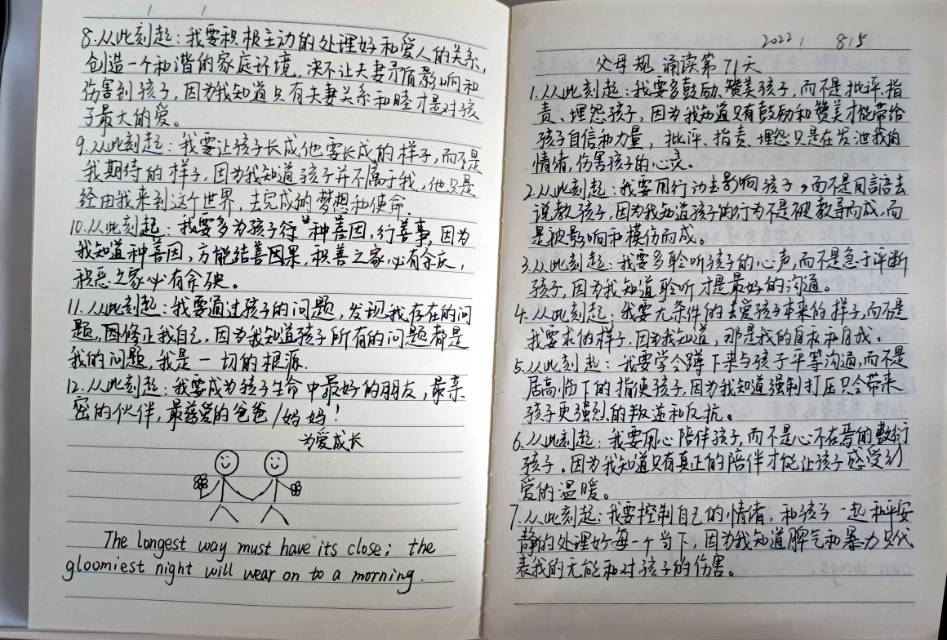 8.从此刻起:我要积极主动的处理好和爱人的关系,
创造一个和谐的家庭环境,决不让夫妻矛盾影响和
伤害到孩子,因为我知道只有夫妻关系和睦才是对孩
子最大的爱。
9.从此刻起:我要让孩子长成他要长成的样子,而不是
我期待的样子,因为我知道孩子并不属于我,他只是
经由我来到这个世界,去完成他的梦想和使命.
10.从此刻起:我要多为孩子种善因,行善事,因为
我知道种善因,方能结善因果,积善之家必有余庆,
积恶之家必有余殃。
11.从此刻起:我要通过孩子的问题,发现我存在的问
题,因修正我自己,因为我知道孩子所有的问题都是
我的问题,我是一切的根源.
12.从此刻起:我要成为孩子生命中最好的朋友,最亲
密的伙伴,最慈爱的爸爸/妈妈!
为爱成长
The longest way must have its close; the
gloomiest night will wear on to a morning.
2022, 8.15
父母规 诵读第71天
1.从此刻起:我要多鼓励、赞美孩子,而不是批评、指
责、埋怨孩子,因为我知道只有鼓励和赞美才能带给
孩子自信和力量,批评、指责、埋怨只是在发泄我的
情绪,伤害孩子的心灵。
2.从此刻起:我要用行动去影响孩子,而不是用言语去
说教孩子,因为我知道孩子的行为不是被教导而成,而
是被影响和模仿而成。
3.从此刻起:我要多聆听孩子的心声,而不是急于评断
孩子,因为我知道聆听才是最好的沟通。
4.从此刻起:我要无条件的去爱孩子本来的样子,而不是
我要求的样子,因为我知道,那是我的自私和自我。
5.从此刻起:我要学会蹲下来与孩子平等沟通,而不是
居高临下的指使孩子,因为我知道强制打压只会带来
孩子更强烈的叛逆和反抗。
6.从此刻起:我要用心陪伴孩子,而不是心不在焉的敷衍
孩子.因为我知道只有真正的陪伴才能让孩子感受到
爱的温暖。
7.从此刻起:我要控制自己的情绪,和孩子一起和平安
静的处理好每一个当下,因为我知道脾气和暴力只代
表我的无能和对孩子的伤害。